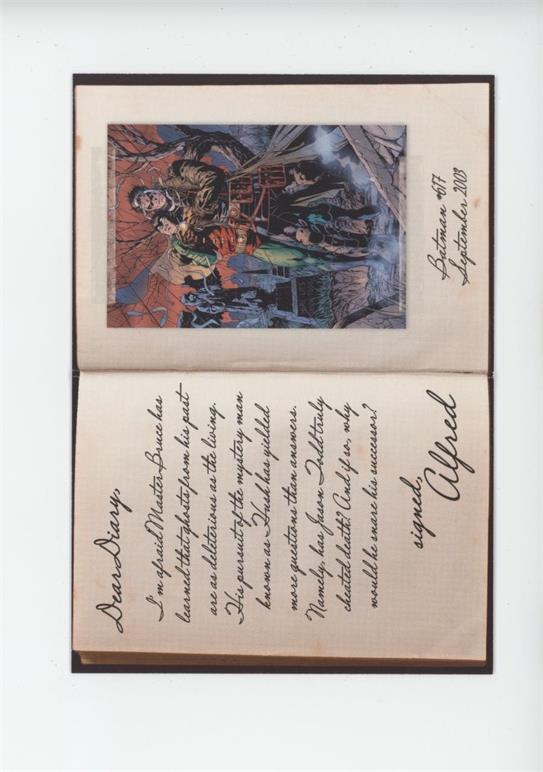 Dear Diary,
I'm afraid Master Bruce has
learned that ghosts from his past
are as deliterious as the living.
His pursuit of the mystery man
known as Hush has yielded
more questions than answers.
Namely, has Jason Todd truly
cheated death? And if so, why
would he snare his successor?
signed,
Alfred
Batman #617
September 2003